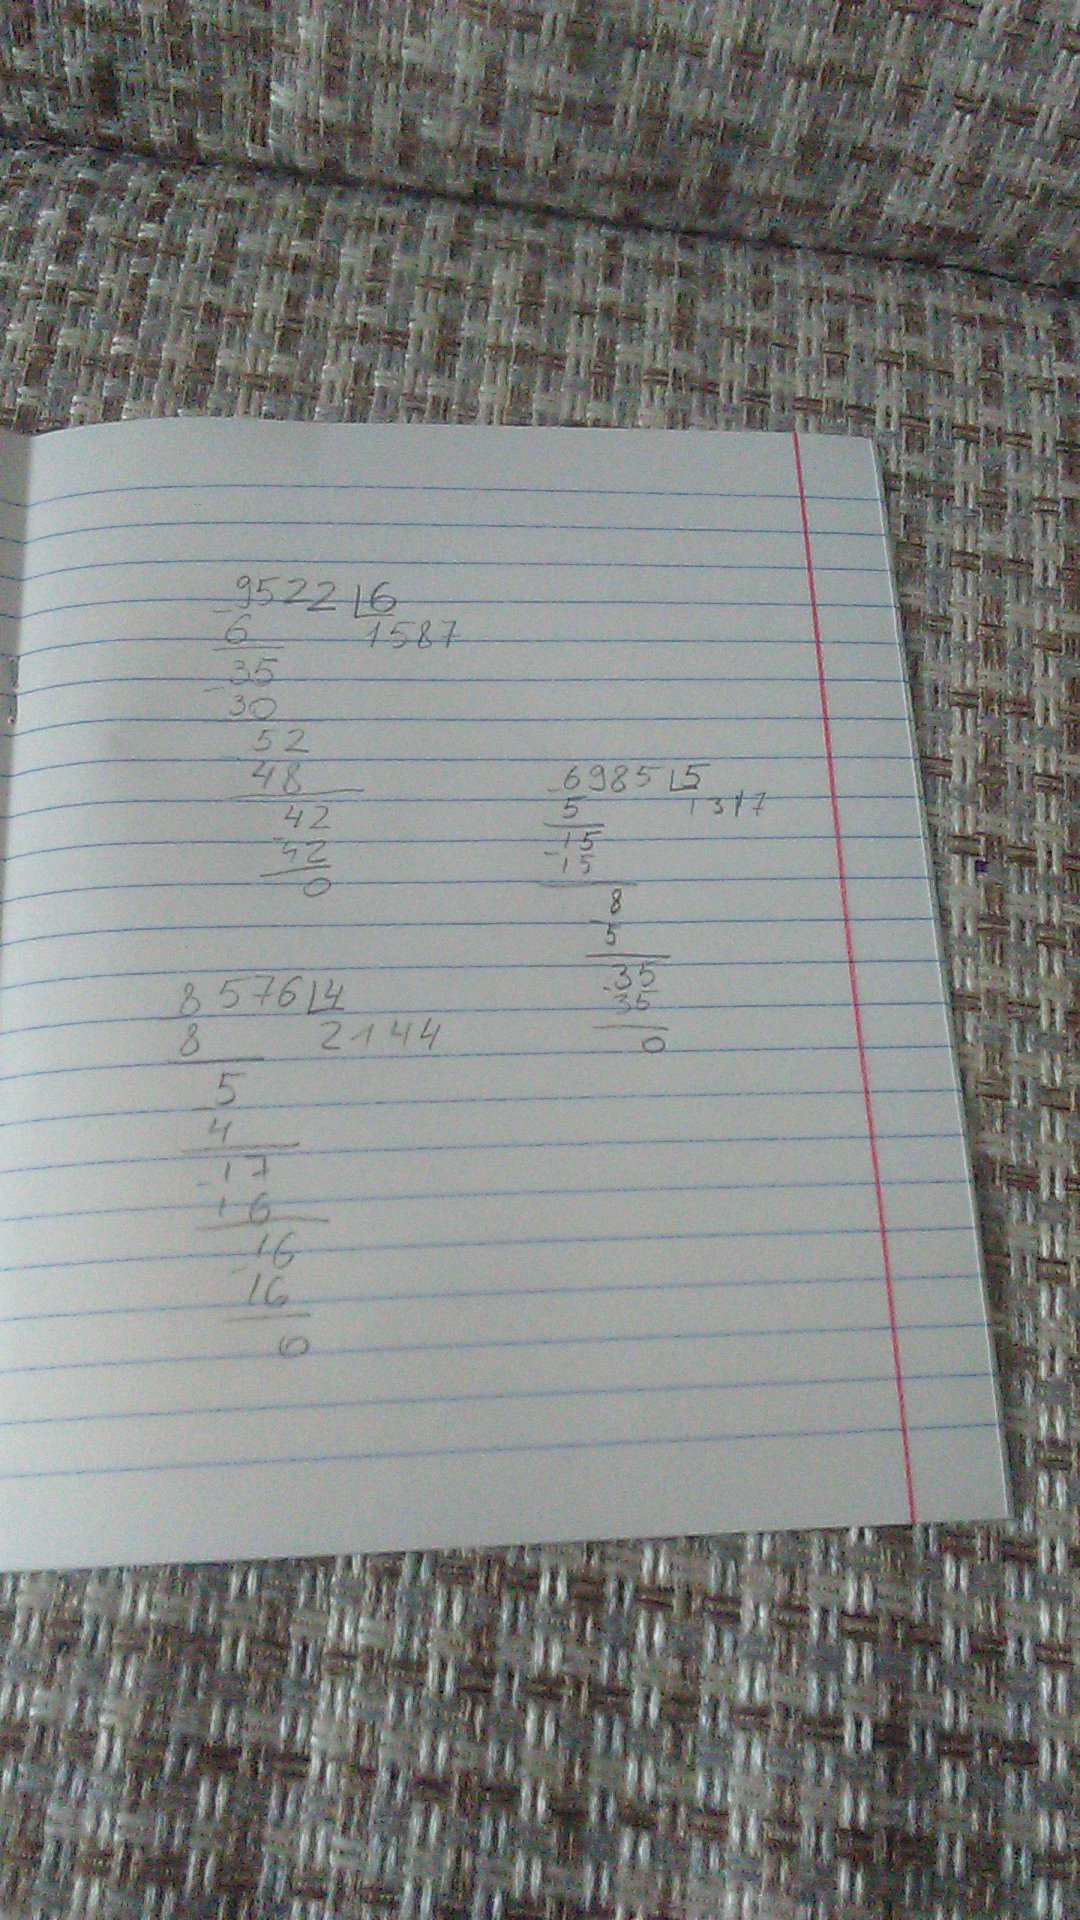 9522 6
- 6 1587
35
- 30
52
48
42
- 42
0
- 6985 5
5 1317
15
- 15
8
- 5
35
- 35
0
8576 4
8 2144
5
4
17
- 16
16
- 16
0